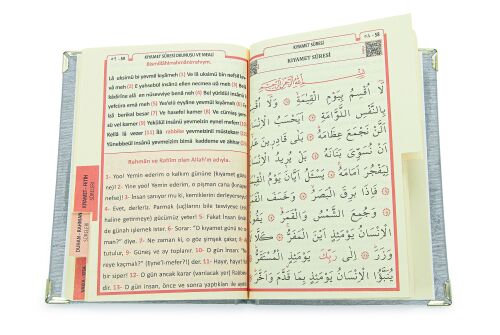 KIYAMET SÛRESİ OKUNUŞU VE MEÂLİ
Bismillâhirrahmânirrahîym.
Lâ uksimü bi yevmil kıyâmeh (1) Ve lâ uksimü bin nefsil lev
vâ meh (2) E yahsebül insânü ellen necmea ızâ meh (3) Belâ
kâdirîne alâ en nüsevviye benâ neh (4) Bel yürîdül insânü li
yefcüra emâ meh (5) Yes'elü eyyâne yevmül kıyâmeh (6) Fe
izâ berikal besar (7) Ve hasefel kamer (8) Ve cümiaş şem
sü vel kamer (9) Yekûlül insânü yevmeizin eynel mefer (10)
Kellâ lâ vezer (11) İlâ rabbike yevmeizinil müstekarr (12)
Yünebbeül insânü yevmeizin bimâ kaddeme ve ahhar (13)
Rahmân ve Rahîm olan Allah'ın adıyla.
1- Yoo! Yemin ederim o kalkım gününe (kıyamet günü-
ne)! 2- Yine yoo! Yemin ederim, o pişman cana (kınayan
nefse)! 3- İnsan sanıyor mu ki, kemiklerini derleyemeyiz?
4- Evet, derleriz. Parmak (uç)larını bile tesviyeye (eski
haline getirmeye) gücümüz yeter! 5- Fakat insan önünde
günah işlemek ister. 6- Sorar: "O kıyamet günü ne za-
man?" diye. 7- Ne zaman ki, o göz şimşek çakar, 8- Ay
tutulur, 9- Güneş ve ay toplanır. 10- O gün insan "Nereye
kaçmalı?" (Eyne'l-mefer?!) der. 11- Hayır, hayır! Yok
bir siper! 12- O gün ancak varış (varılacak yer) Rabbinedir.
13- O gün insan, önce ve sonra yaptıkları ile
KIYAMET - FETİH
SÛRELERİ
DUHAN - RAHMAN
SÛRELERİ
KIYAMET SÛRESİ
KIYAMET SÛRESİ
لَا أُقْسِمُ بِيَوْمِ الْقِيٰمَةِ وَلَا أُقْسِمُ
بِالنَّفْسِ اللَّوَّامَةِ أَيَحْسَبُ الْإِنْسَانُ
أَلَّنْ نَجْمَعَ عِظَامَهُ بَلٰى قَادِرِينَ عَلٰى
أَنْ نُسَوِّيَ بَنَانَهُ بَلْ يُرِيدُ الْإِنْسَانُ
لِيَفْجُرَ أَمَامَهُ يَسْـَٔلُ أَيَّانَ يَوْمُ الْقِيٰمَةِ
فَإِذَا بَرِقَ الْبَصَرُ وَخَسَفَ الْقَمَرُ
وَجُمِعَ الشَّمْسُ وَالْقَمَرُ يَقُولُ
الْإِنْسَانُ يَوْمَئِذٍ أَيْنَ الْمَفَرُّ كَلَّا لَا
وَزَرَ إِلٰى رَبِّكَ يَوْمَئِذٍ الْمُسْتَقَرُّ
يُنَبَّؤُا الْإِنْسَانُ يَوْمَئِذٍ بِمَا قَدَّمَ وَأَخَّرَ